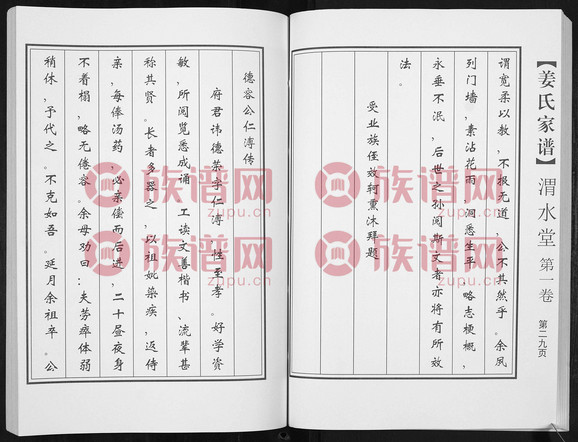 【姜氏家谱】渭水堂 第一卷 第二九页
谓宽柔以教，不报无道，公不其然乎。余夙
列门墙，素沾花雨，洞悉生平，略志梗概，
永垂不泯，后世之孙阅斯文者亦将有所效
法。
受业族侄效轲熏沐拜题
德容公仁溥传
府君讳德荣，字仁溥，性至孝。好学资
敏，所阅览悉成诵，工读文善楷书、流辈甚
称其贤。长者多器之，以祖妣染疾，返侍
亲，每俸汤药，必亲偿而后进，二十昼夜身
不着榻，略无倦容。余母劝曰：夫劳瘁体弱
稍休，予代之。不克如吾。延月余祖卒。公
族谱网
zupu.cn
族谱网
zupu.cn
族谱网
zupu.cn
族谱网
zupu.cn